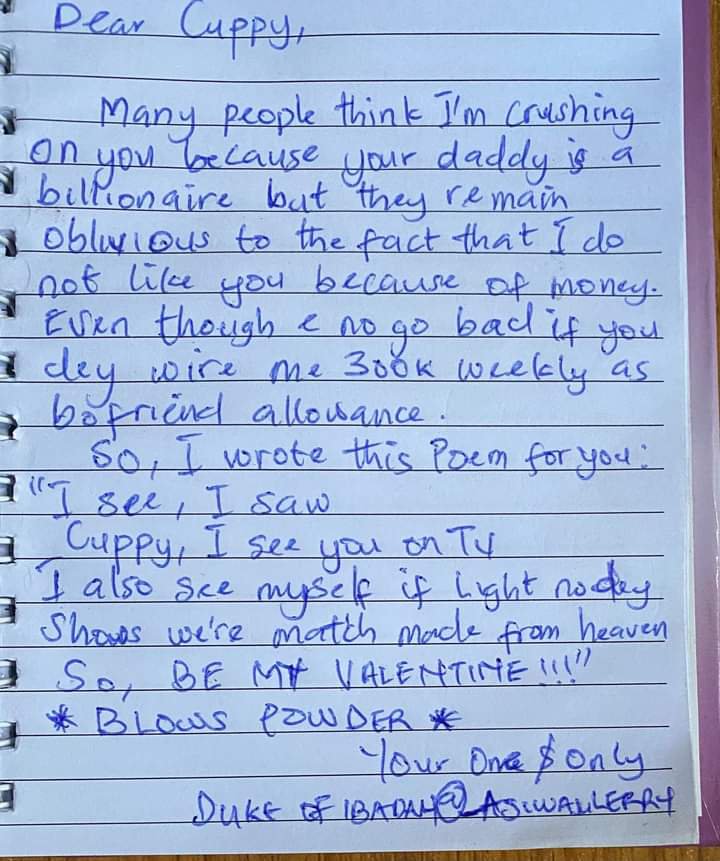 Dear Cuppy,
Many people think I'm crushing
on you because your daddy is a
billionaire but they remain
oblivious to the fact that I do
not like you because of money.
Even though e no go bad if you
dey wire me 300k weekly as
bofriend allowance.
So, I wrote this Poem for you:
"I see, I saw
Cuppy, I see you on TV
I also see myself if Light no dey
Shows we're match made from heaven
So, BE MY VALENTINE!!!"
* BLOWS POWDER *
Your One $ Only
DUKE OF IBADAN@